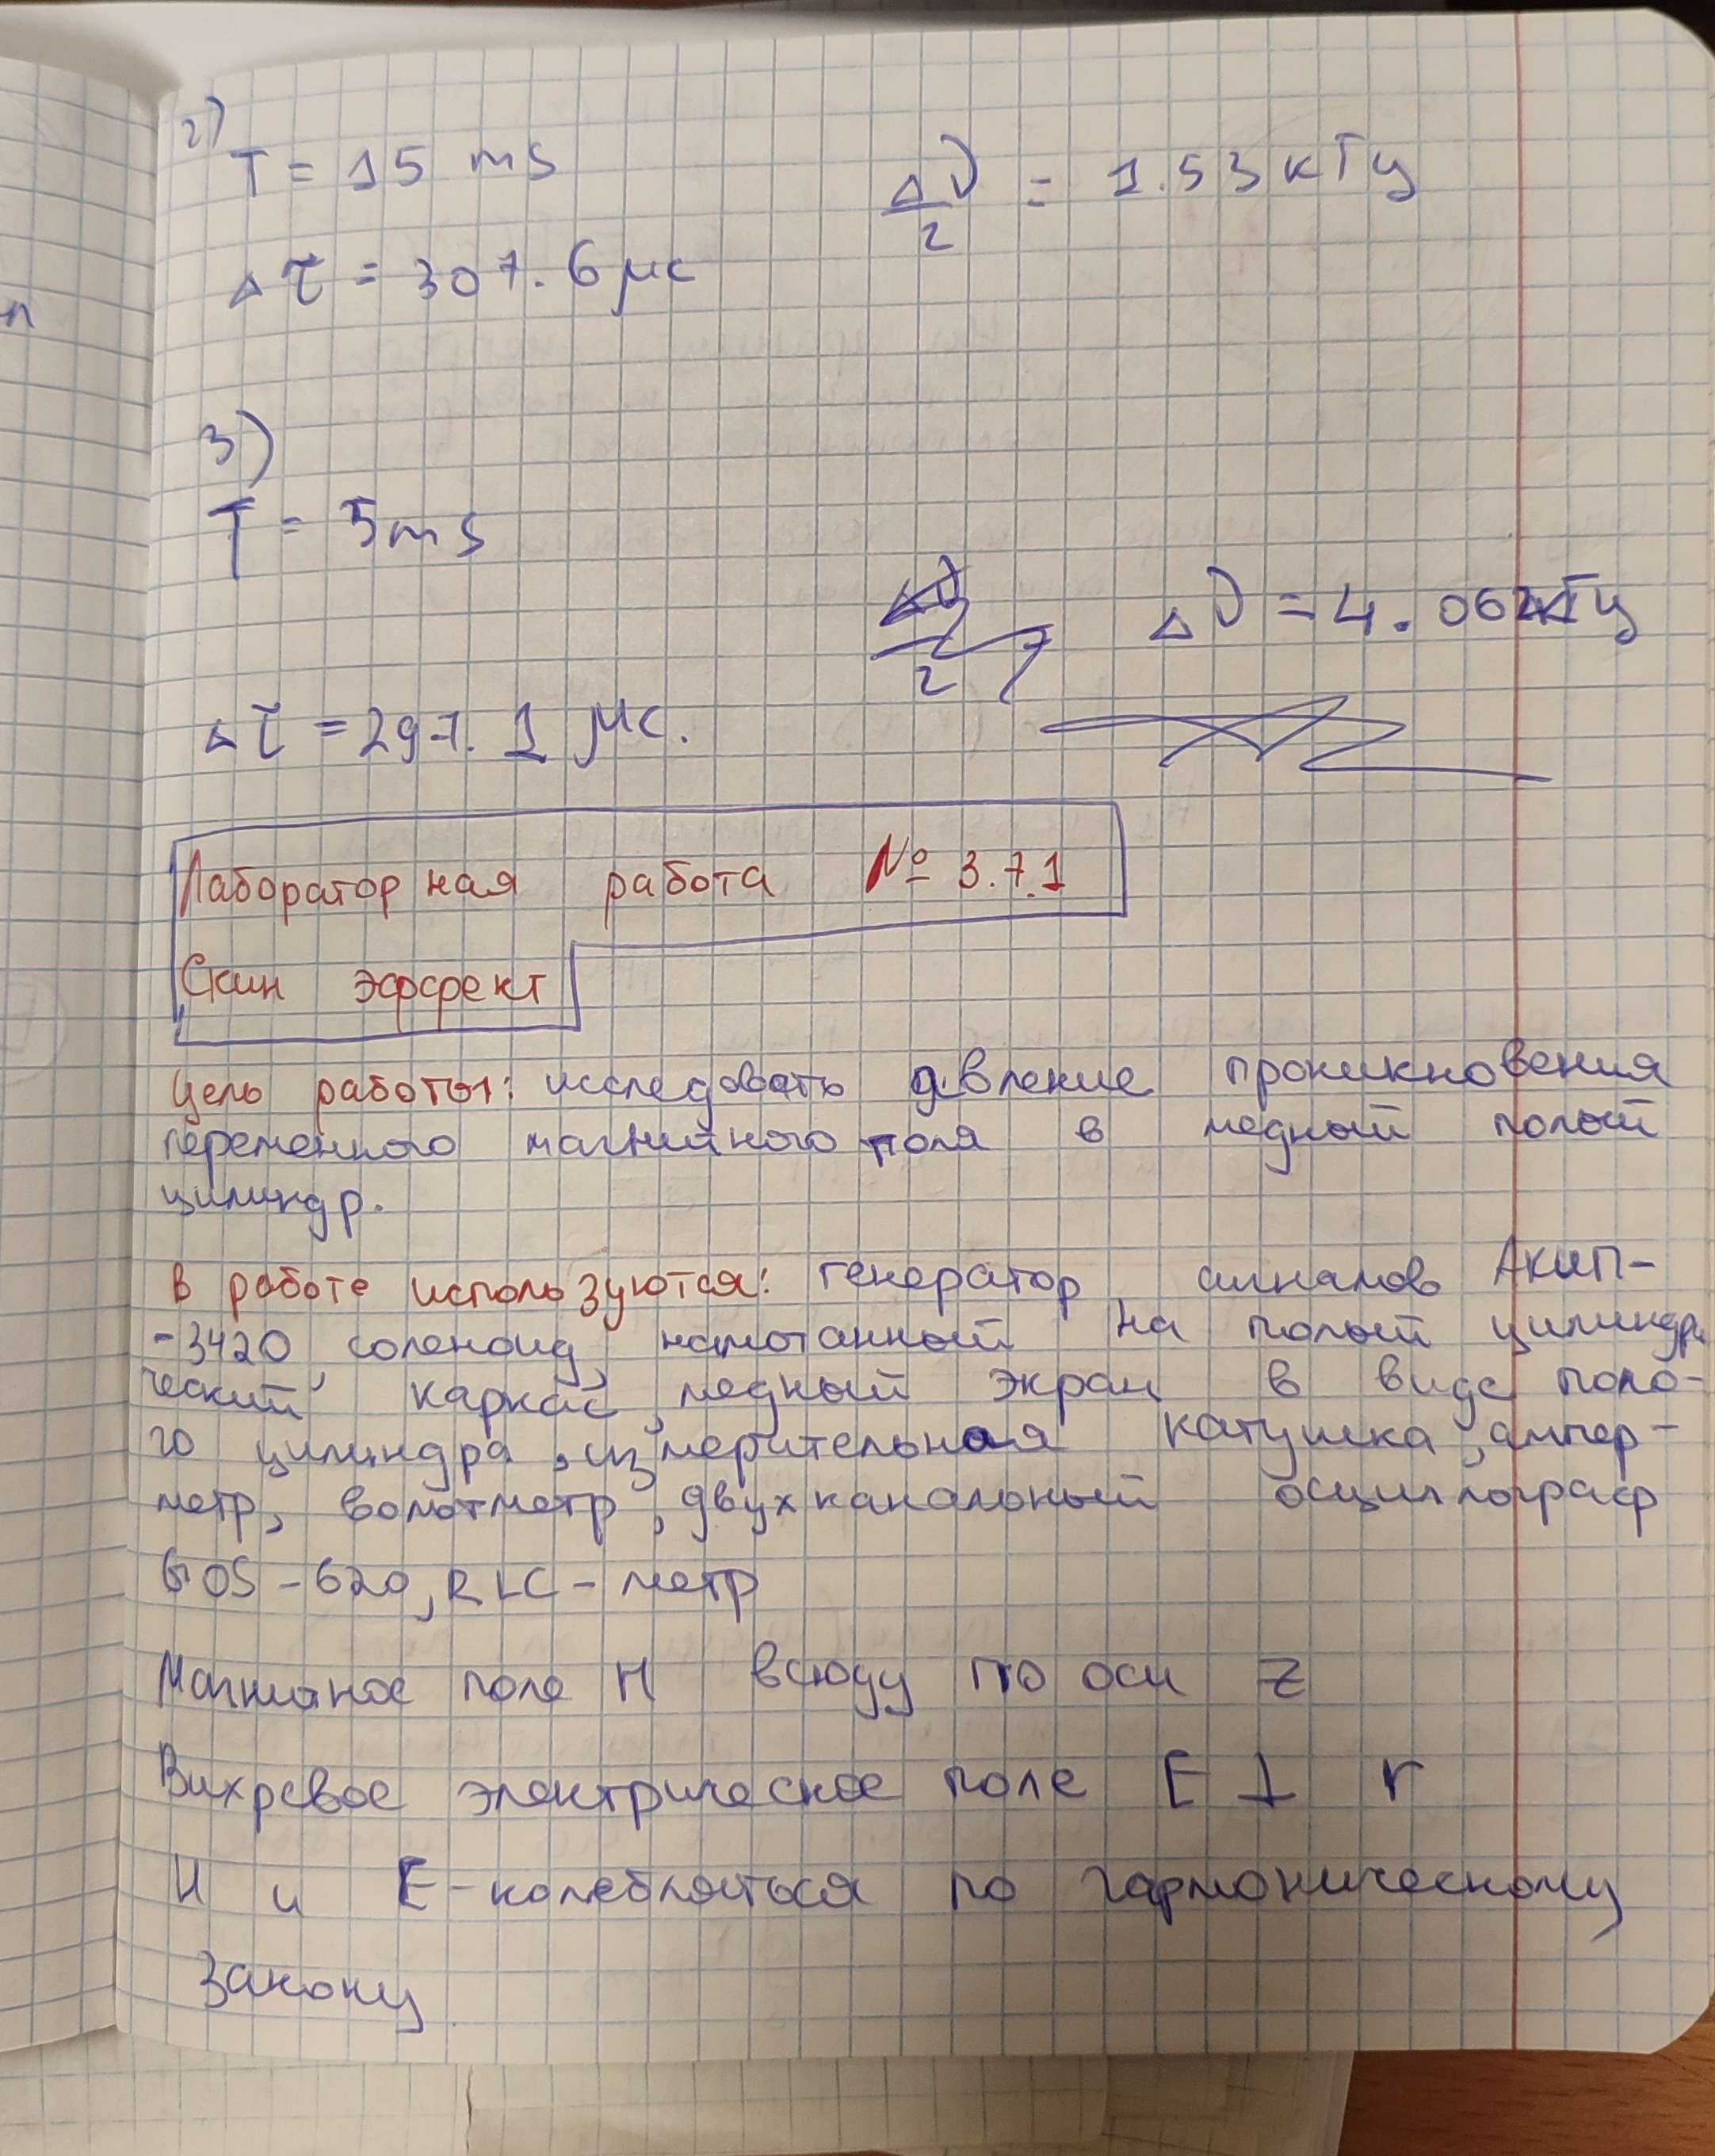 2)
T = 15 ms
Δν/2 = 1.53 кГц
Δτ = 307.6 μс
п
3)
T = 5ms
Δν = 4.06 кГц
Δτ = 297.1 μс.
Лабораторная работа № 3.7.1
Скин эффект
Цель работы: исследовать явление проникновения
переменного магнитного поля в медный полый
цилиндр.
В работе используются: генератор сигналов АКИП-
-3420, соленоид, намотанный на полый цилиндри
ческий каркас, медный экран в виде поло-
го цилиндра, измерительная катушка, ампер-
метр, вольтметр, двухканальный осциллограф
GOS-620, RLC-метр
Магнитное поле H всюду по оси z
Вихревое электрическое поле E ⊥ r
H и E-колебляться по гармоническому
закону